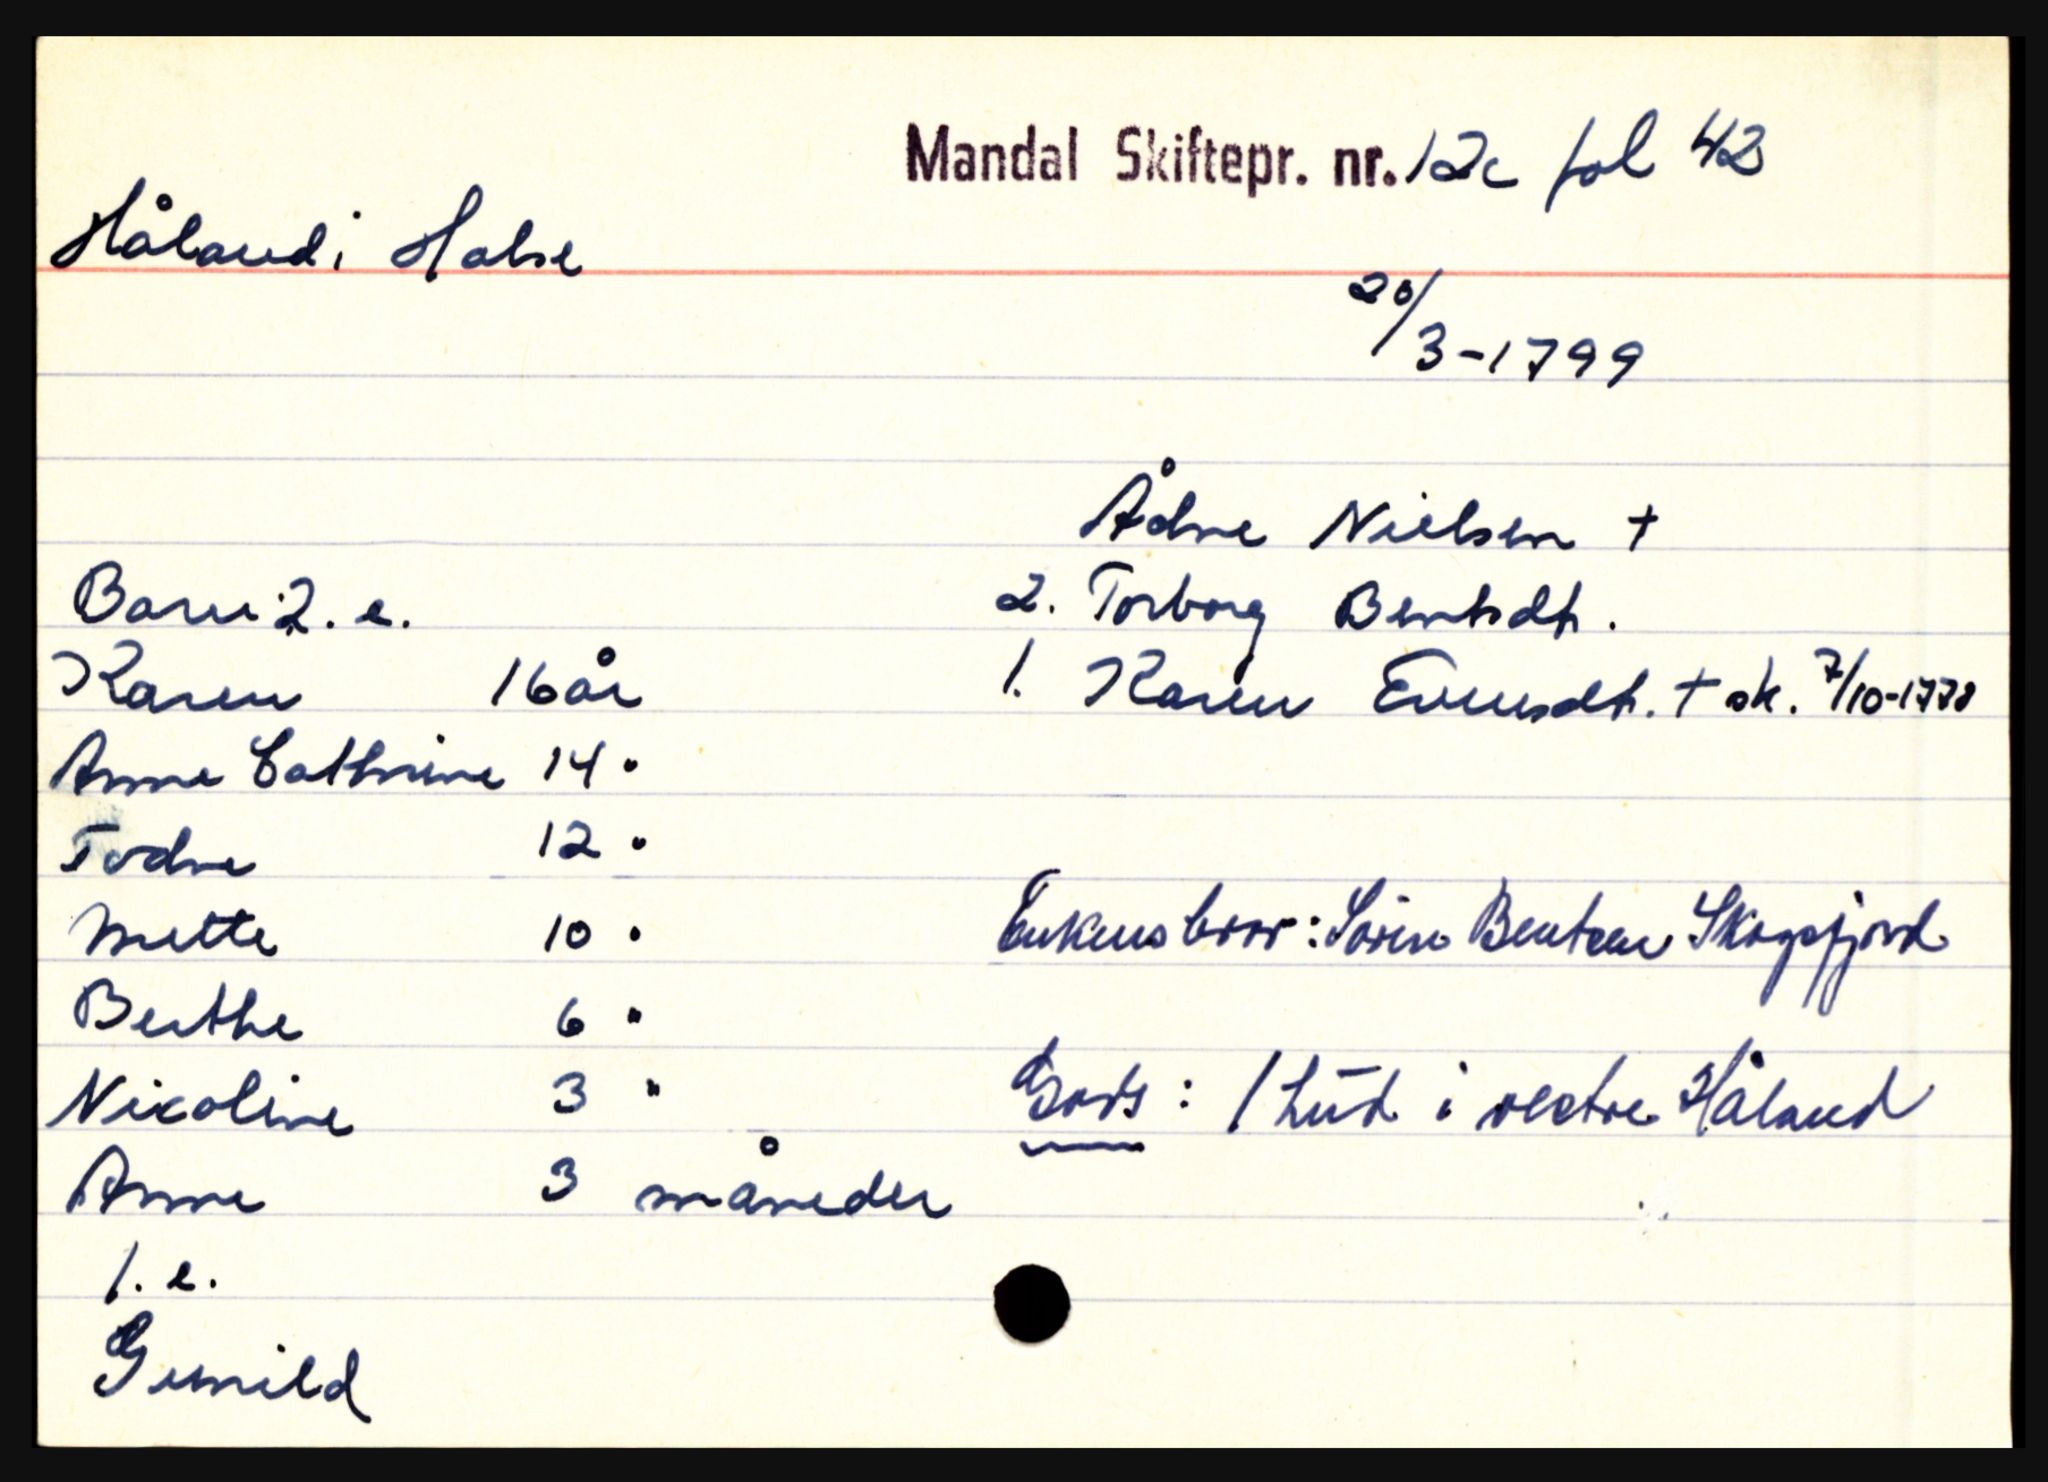 Mandal Skiftepr. nr. 12c fol 42
Håland i Halse
20/3-1799
Ådne Nielsen +
2. Torborg Bentsdt.
1. Karen Evensdt. + sk. 7/10-1778
Barn: 2. e.
Karen 16 år
Anne Cathrine 14 "
Todne 12 "
Mette 10 "
Berthe 6 "
Nicoline 3 "
Anne 3 måneder
1. e.
Gunild
Enkens bror: Sören Bentsen Skogsfjord
Gods: 1 hud i vestre Håland